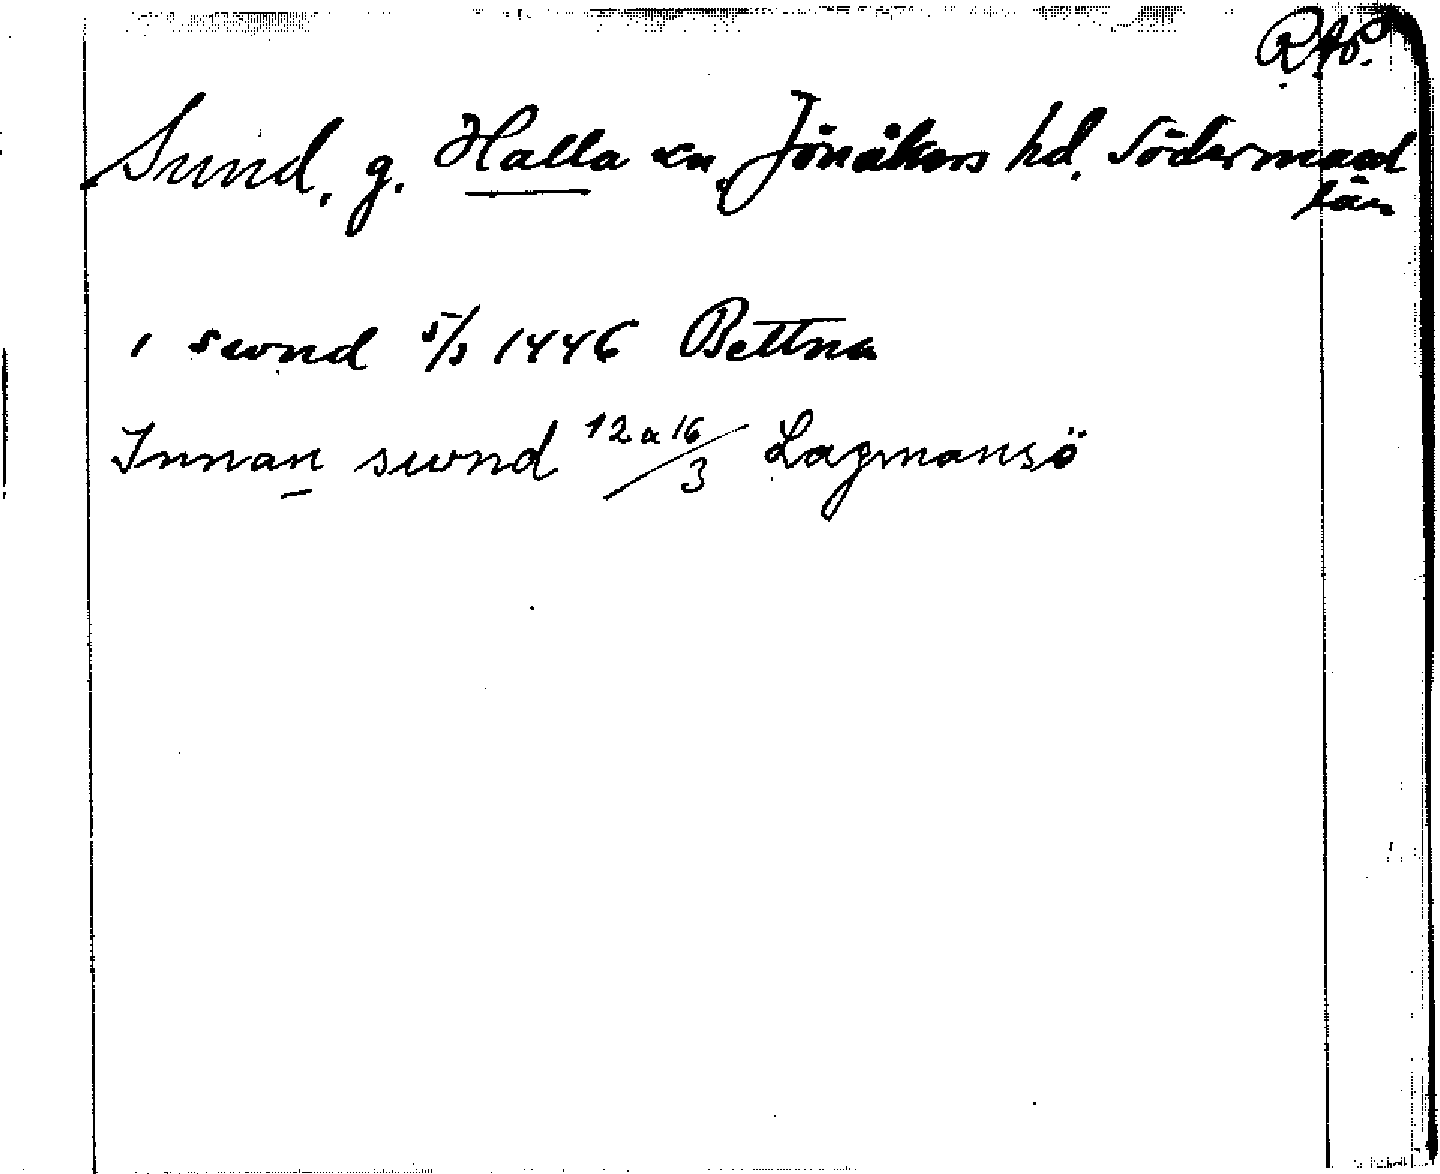 RAp.
Sund, g. Halla sn, Jönåkers hd. Södermanl
län
i swnd 5/3 1446 Bettna
Innan swnd 12 a 16/3 Lagmansö